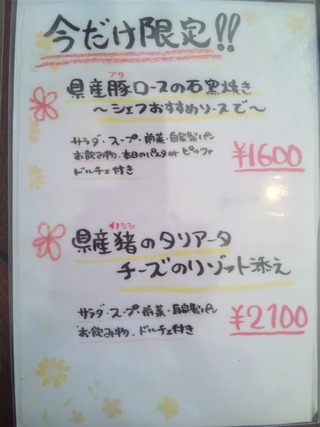 今だけ限定!!
ブタ
県産豚ロースの石窯焼き
～シェフおすすめソースで～
サラダ・スープ・前菜・自家製パン
お飲み物、本日のパスタorピッツァ
ドルチェ付き
¥1600
イノシシ
県産猪のタリアータ
チーズのリゾット添え
サラダ・スープ・前菜・自家製パン
お飲み物、ドルチェ付き
¥2100